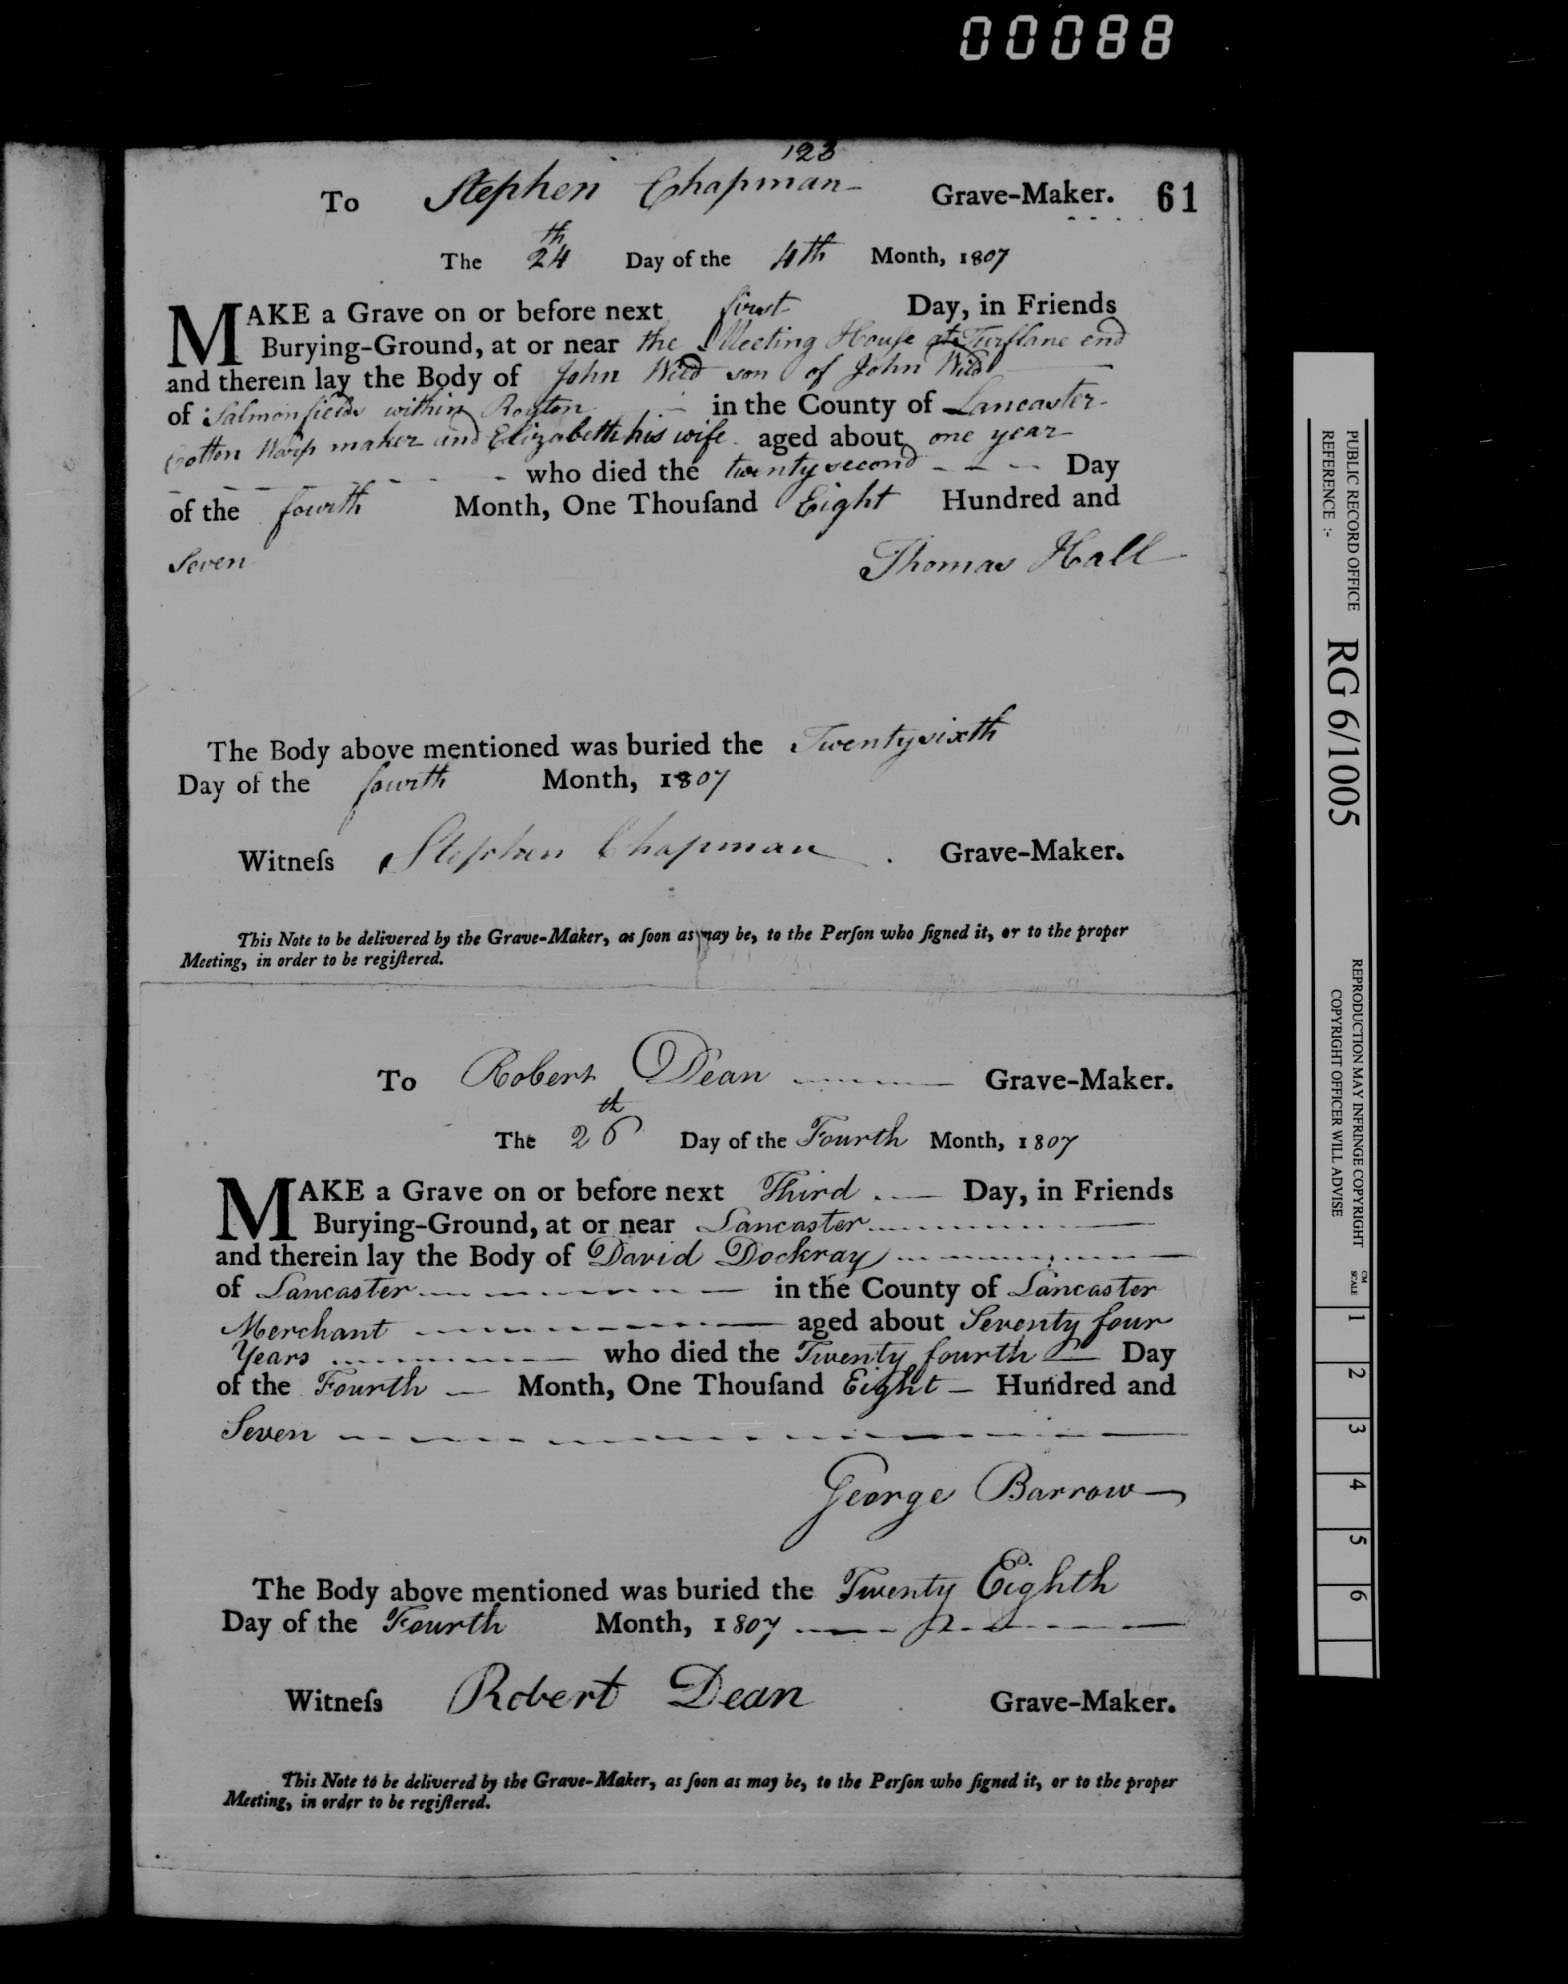 00088
123
To Stephen Chapman Grave-Maker. 61
The 24th Day of the 4th Month, 1807
MAKE a Grave on or before next first Day, in Friends
Burying-Ground, at or near the Meeting House at Turflane end
and therein lay the Body of John Wild son of John Wild
of Salmonfields within Royton in the County of Lancaster
Cotton Warp maker and Elizabeth his wife aged about one year
who died the twenty second Day
of the fourth Month, One Thouſand Eight Hundred and
Seven
Thomas Hall
The Body above mentioned was buried the Twenty sixth
Day of the fourth Month, 1807
Witneſs Stephen Chapman Grave-Maker.
This Note to be delivered by the Grave-Maker, as ſoon as may be, to the Perſon who ſigned it, or to the proper
Meeting, in order to be regiſtered.
To Robert Dean Grave-Maker.
The 26th Day of the Fourth Month, 1807
MAKE a Grave on or before next Third Day, in Friends
Burying-Ground, at or near Lancaster
and therein lay the Body of David Dockray
of Lancaster in the County of Lancaster
Merchant aged about Seventy four
Years who died the Twenty fourth Day
of the Fourth Month, One Thouſand Eight Hundred and
Seven
George Barrow
The Body above mentioned was buried the Twenty Eighth
Day of the Fourth Month, 1807
Witneſs Robert Dean Grave-Maker.
This Note to be delivered by the Grave-Maker, as ſoon as may be, to the Perſon who ſigned it, or to the proper
Meeting, in order to be regiſtered.
PUBLIC RECORD OFFICE
REFERENCE :-
RG 6/1005
REPRODUCTION MAY INFRINGE COPYRIGHT
COPYRIGHT OFFICER WILL ADVISE
CM
SCALE
1 2 3 4 5 6